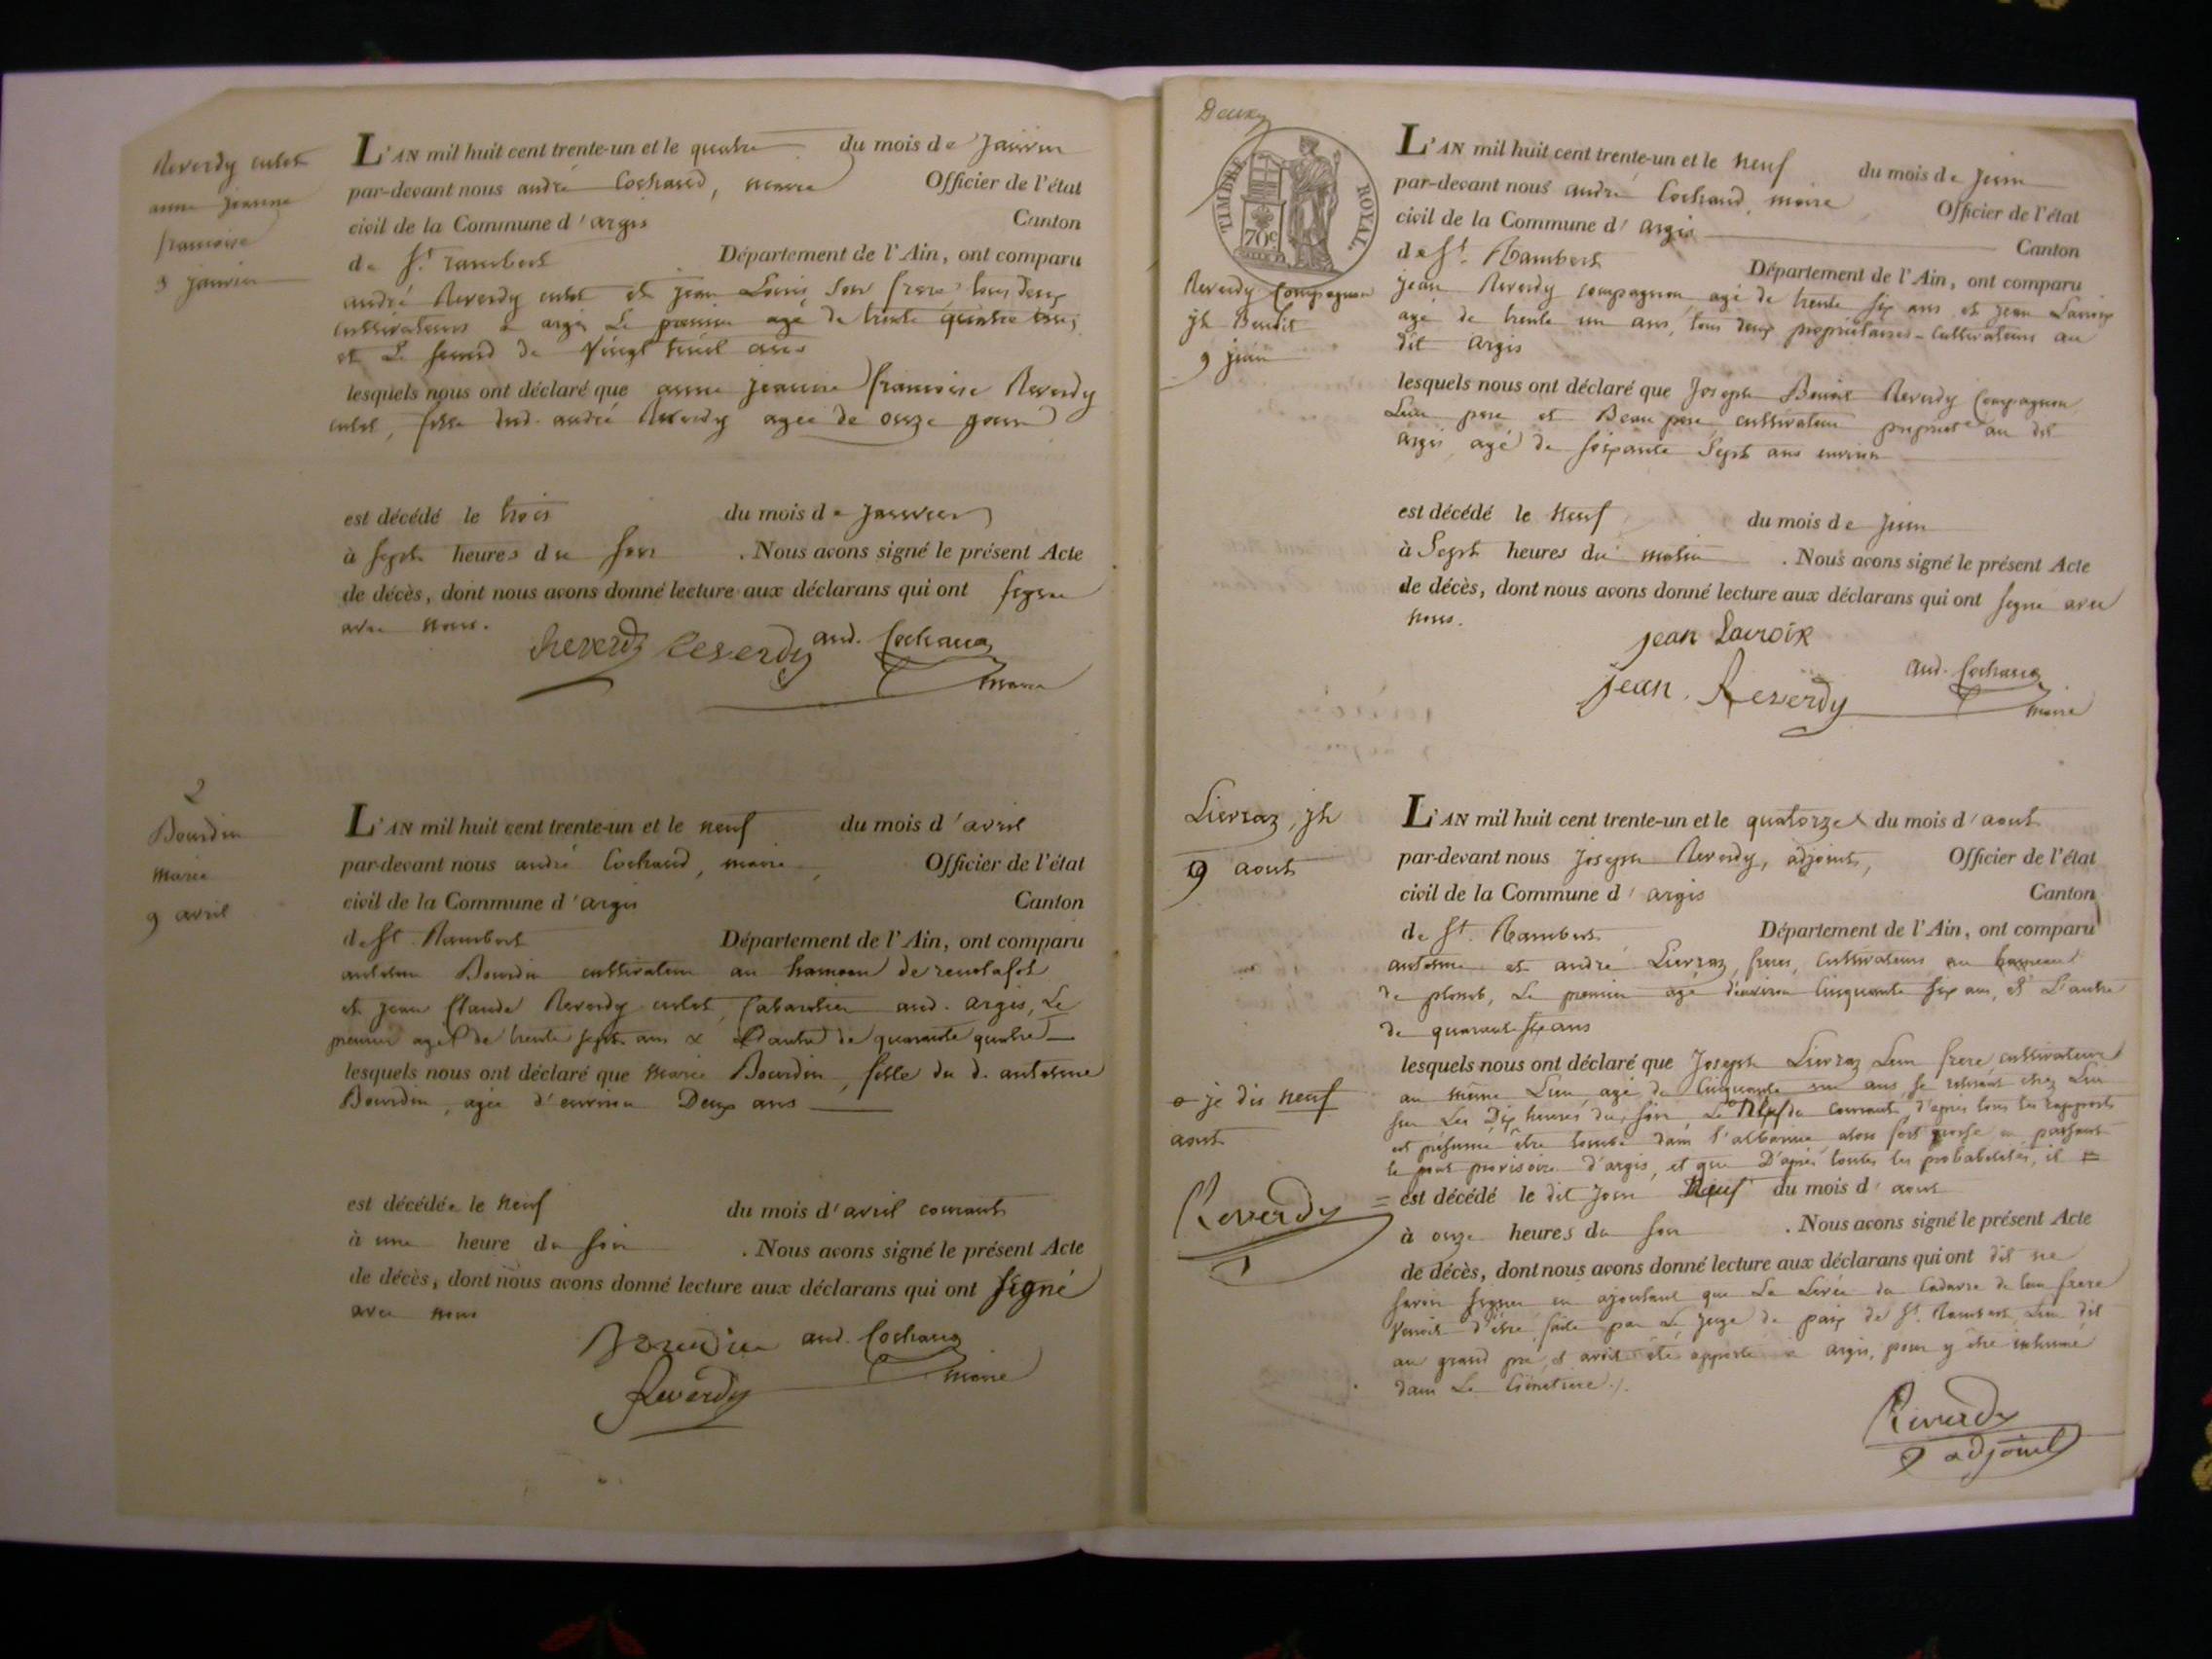 Reverdy culet
anne jeanne
francoise
3 janvier
L'AN mil huit cent trente-un et le quatre du mois de Janvier
par-devant nous andré Cochaud, maire Officier de l'état
civil de la Commune d'argis Canton
de St. rambert Département de l'Ain, ont comparu
andré Reverdy culet et jean Louis son frere tous deux
cultivateurs à argis Le premier agé de trente quatre ans,
et Le second de Vingt huit ans
lesquels nous ont déclaré que anne jeanne francoise Reverdy
culet, fille dud. andré Reverdy agée de onze jours
est décédé le trois du mois de janvier
à sept heures du soir . Nous avons signé le présent Acte
de décès, dont nous avons donné lecture aux déclarans qui ont signé
avec nous.
Reverdy Reverdy and. Cochaud
maire
2
Bourdin
marie
9 avril
L'AN mil huit cent trente-un et le neuf du mois d'avril
par-devant nous andré Cochaud, maire, Officier de l'état
civil de la Commune d'argis Canton
de St. Rambert Département de l'Ain, ont comparu
antoine Bourdin cultivateur au hameau de
et jean Claude Reverdy culet, Cabaretier aud. argis, Le
premier agé de trente sept ans & L'autre de quarante quatre
lesquels nous ont déclaré que marie Bourdin, fille du d. antoine
Bourdin, agée d'environ Deux ans
est décédée le neuf du mois d'avril courant
à une heure du soir . Nous avons signé le présent Acte
de décès, dont nous avons donné lecture aux déclarans qui ont signé
avec nous
Bourdin and. Cochaud
Reverdy maire
Deux
TIMBRE ROYAL.
70c
Reverdy Compagnon
jh Benoit
9 juin
L'AN mil huit cent trente-un et le neuf du mois de juin
par-devant nous andré Cochaud, maire Officier de l'état
civil de la Commune d'argis Canton
de St. Rambert Département de l'Ain, ont comparu
jean Reverdy compagnon, agé de trente six ans et jean Lacroix
agé de trente un ans, tous deux propriétaires-cultivateurs au
dit argis
lesquels nous ont déclaré que Joseph Benoit Reverdy Compagnon
Leur pere et Beau pere, cultivateur propriete au dit
argis, agé de soixante Sept ans environ
est décédé le neuf du mois de juin
à Sept heures du matin . Nous avons signé le présent Acte
de décès, dont nous avons donné lecture aux déclarans qui ont signé avec
nous.
jean Lacroix
jean. Reverdy and. Cochaud
maire
Lievraz, jh
9 aout
L'AN mil huit cent trente-un et le quatorze du mois d'aout
par-devant nous Joseph Reverdy, adjoint, Officier de l'état
civil de la Commune d'argis Canton
de St. Rambert Département de l'Ain, ont comparu
antoine et andré Lievraz, freres, Cultivateurs au hameau
de plomb, Le premier agé d'environ Cinquante six ans, et L'autre
de quarante six ans
lesquels nous ont déclaré que Joseph Lievraz Leur frere, cultivateur
au même Lieu, agé de Cinquante un ans, se retirant chez Lui
sur Les Dix heures du soir Le neuf du Courant, d'après tous les rapports
est présumé être tombé dans l'albarine alors fort grosse en passant
le pont provisoire d'argis, et que D'après toutes les probabilités, il =
= est décédé le dit jour Neuf du mois d'aout
à onze heures du soir . Nous avons signé le présent Acte
de décès, dont nous avons donné lecture aux déclarans qui ont dit ne
savoir signer en ajoutant que La Levée du Cadavre de leur frere
Venoit d'être faite par Le juge de paix de St. Rambert Lieu dit
au grand pré, et avoit été apporté à argis, pour y être inhumé
dans Le Cimetiere ./.
je dis neuf
aout
Reverdy
Reverdy
adjoint